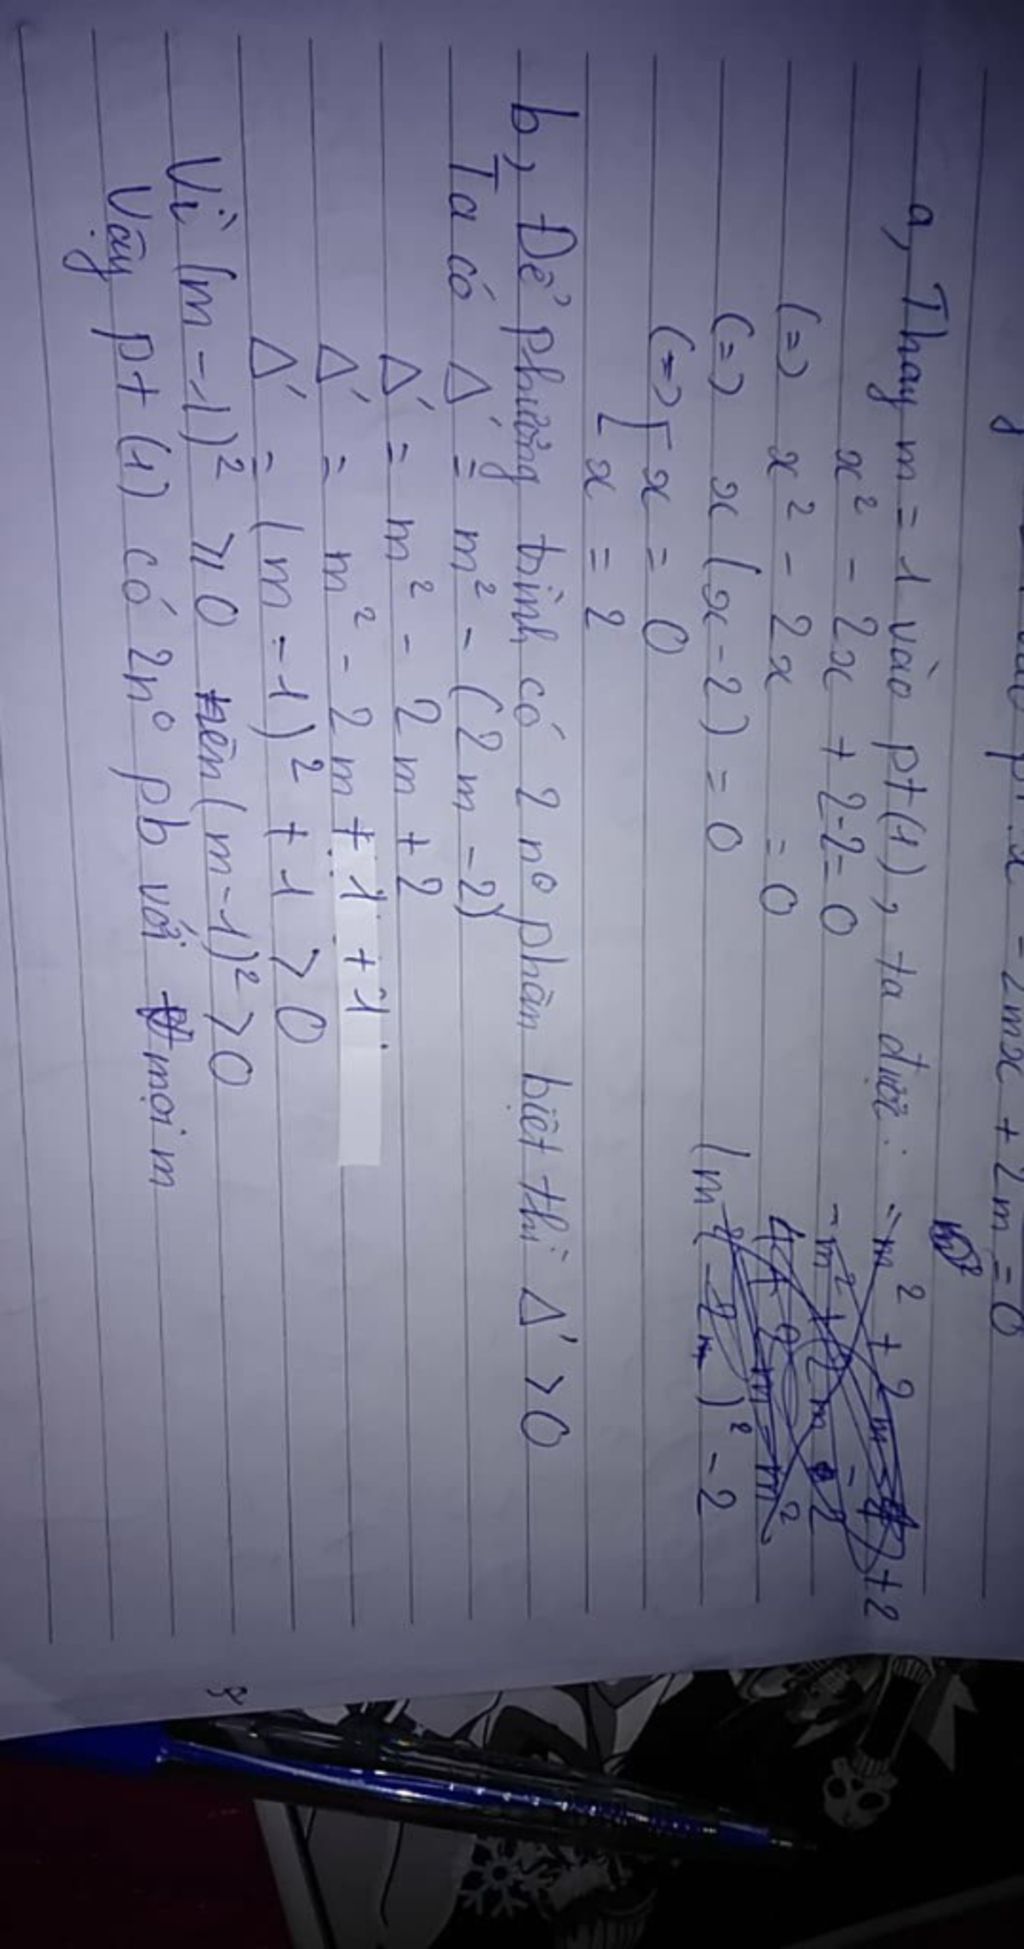 x² - 2mx + 2m = 0
a, Thay m = 1 vào pt(1), ta được:
x² - 2x + 2-2= 0
(=) x² - 2x = 0
(=) x (x-2) = 0
(=) [ x = 0
[ x = 2
= m² + 2m +2
- m² + 2m - 2
(m - 2m)² - 2
b, Để phương trình có 2 n⁰ phân biệt thì Δ' > 0
Ta có Δ' = m² - (2m -2)
Δ' = m² - 2m + 2
Δ' = m² - 2m + 1 + 1
Δ' = (m - 1)² + 1 > 0
Vì (m - 1)² ⩾ 0 nên (m-1)² > 0
Vậy pt (1) có 2n⁰ pb với mọi m